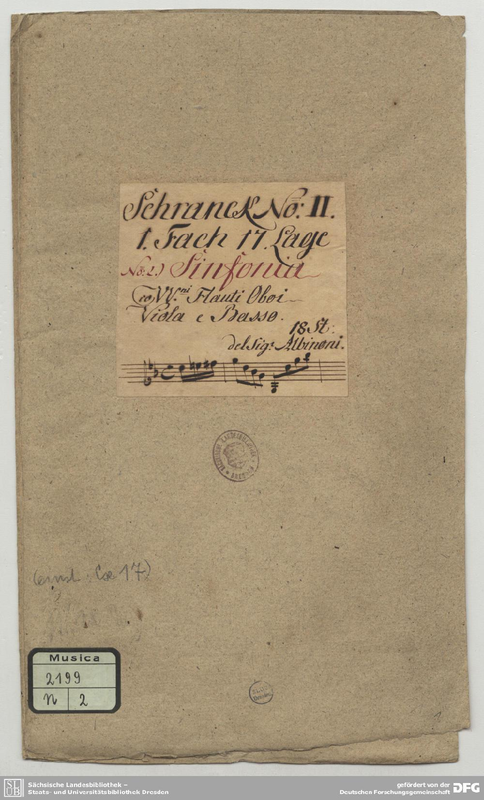 Schranck No: II.
1. Fach 17. Lage
No: 2) Sinfonia
co VV.ni Flauti Oboi
Viola e Basso.
18 St:
del Sigr. Albinoni.
17)
Musica
2199
n 2
Sächsische Landesbibliothek –
Staats- und Universitätsbibliothek Dresden
gefördert von der
Deutschen Forschungsgemeinschaft
DFG